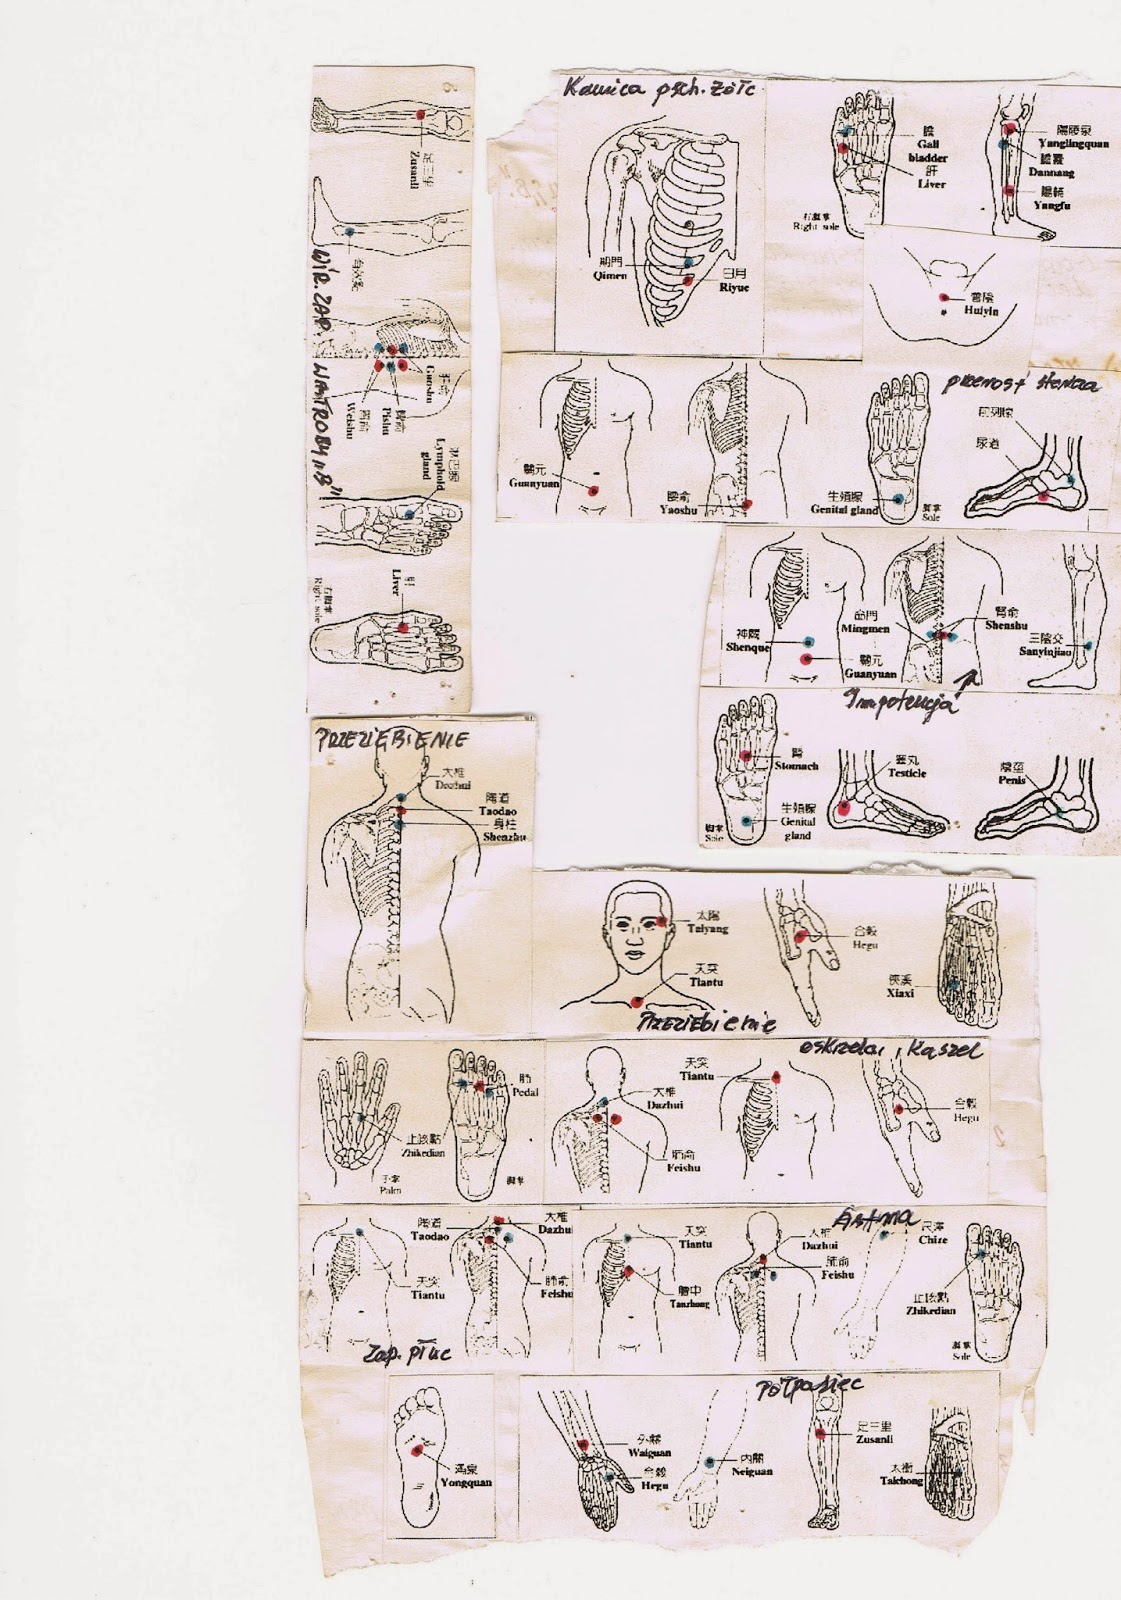 足三里
Zusanli
WIR. ZAP. WĄTROBY "B"
肝俞
Ganshu
脾俞
Pishu
胃俞
Weishu
淋巴腺
Lymphoid
gland
肝
Liver
右腳掌
Right sole
Kamica pęch. żółc
期門
Qimen
日月
Riyue
膽
Gall
bladder
肝
Liver
右腳掌
Right sole
陽陵泉
Yanglingquan
膽囊
Dannang
陽輔
Yangfu
會陰
Huiyin
關元
Guanyuan
腰俞
Yaoshu
生殖腺
Genital gland
腳掌
Sole
前列腺
尿道
神闕
Shenque
關元
Guanyuan
命門
Mingmen
腎俞
Shenshu
三陰交
Sanyinjiao
Impotencja
腎
Stomach
生殖腺
Genital
gland
腳掌
Sole
睪丸
Testicle
陰莖
Penis
PRZEZIĘBIENIE
大椎
Dazhui
陶道
Taodao
身柱
Shenzhu
太陽
Taiyang
天突
Tiantu
合穀
Hegu
俠溪
Xiaxi
PRZEZIębienie
oskrzela, kaszel
止咳點
Zhikedian
手掌
Palm
肺
Pedal
腳掌
大椎
Dazhui
肺俞
Feishu
天突
Tiantu
合穀
Hegu
天突
Tiantu
陶道
Taodao
大椎
Dazhui
肺俞
Feishu
Zap. płuc
Astma
天突
Tiantu
膻中
Tanzhong
大椎
Dazhui
肺俞
Feishu
尺澤
Chize
止咳點
Zhikedian
腳掌
Sole
湧泉
Yongquan
Półpasiec
外關
Waiguan
合穀
Hegu
內關
Neiguan
足三里
Zusanli
太衝
Taichong